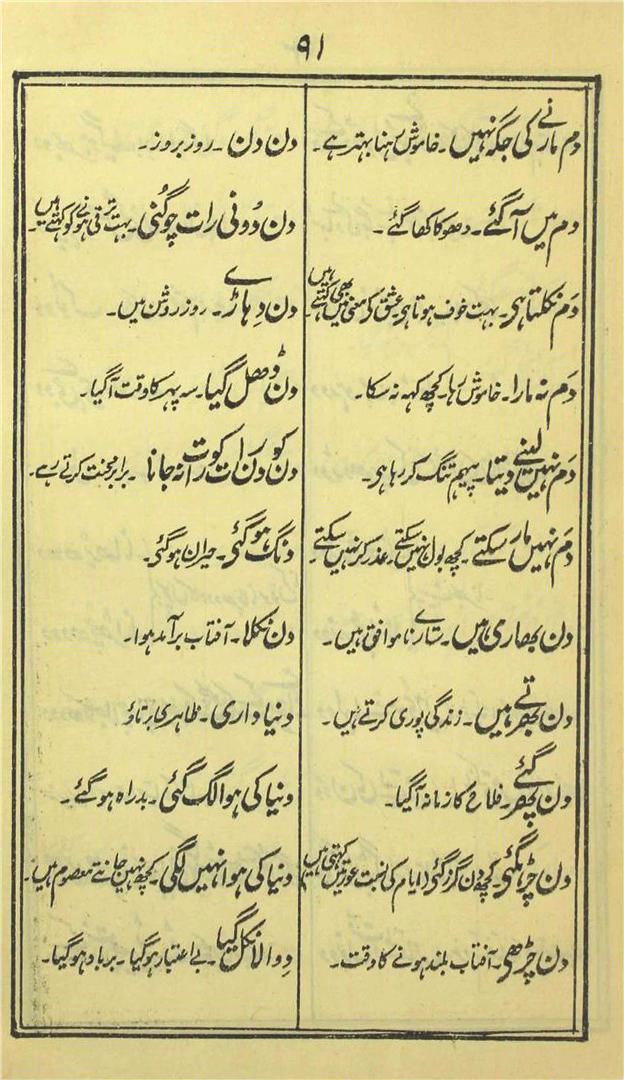 ۹۱
دم مارنے کی جگہ نہیں۔ خاموش رہنا بہتر ہے۔
دم میں آگئے۔ دھوکا کھا گئے۔
دَم نکلتا ہی۔ بہت خوف ہوتا ہی عشق کے معنی میں بھی کہتے ہیں
دَم نہ مارا۔ خاموش رہا۔ کچھ کہہ نہ سکا۔
دَم نہیں لینے دیتا۔ پیہم تنگ کر رہا ہی۔
دَم نہیں مار سکتے۔ کچھ بول نہیں سکتے۔ عذر کر نہیں سکتے۔
دن بھاری ہیں۔ ستارے ناموافق ہیں۔
دن بھرتے ہیں۔ زندگی پوری کرتے ہیں۔
دن پھر گئے۔ فلاح کا زمانہ آگیا۔
دن چڑھ گئے۔ کچھ دن گزر گئے (ایام کی نسبت عورتیں کہتی ہیں
دن چڑھی۔ آفتاب بلند ہونے کا وقت۔
دن دن۔ روز بروز۔
دن دُونی رات چوگُنی۔ بہت ترقی ہونے کو کہتے ہیں۔
دن دِہاڑے۔ روز روشن میں۔
دن ڈھل گیا۔ سہ پہر کا وقت آگیا۔
دن کو دن رات کو رات نہ جانا۔ برابر محنت کرتے رہے۔
دنگ ہوگئی۔ حیران ہوگئی۔
دن نکلا۔ آفتاب برآمد ہوا۔
دنیا داری۔ ظاہری برتاؤ
دنیا کی ہوا لگ گئی۔ بدراہ ہوگئے۔
دنیا کی ہوا نہیں لگی۔ کچھ نہیں جانتے معصوم ہیں۔
دِوالا نکل گیا۔ بے اعتبار ہوگیا۔ برباد ہوگیا۔